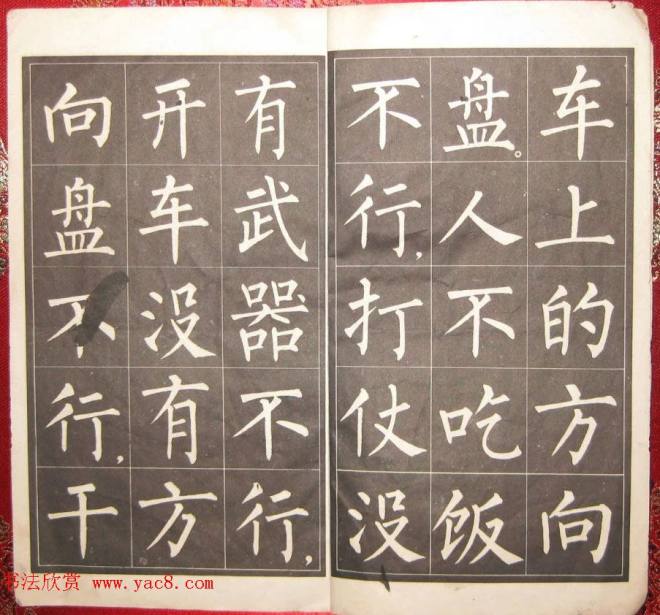 车上的方向
盘。人不吃饭
不行，打仗没
有武器不行，
开车没有方
向盘不行，干
书法欣赏 www.yac8.com